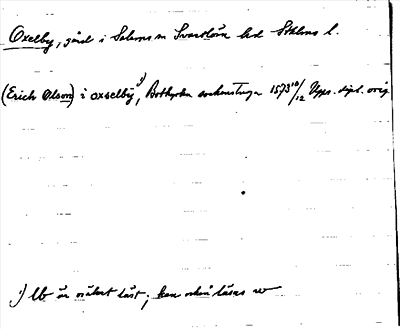 Oxelby, gård i Salems sn Svartlösa hd Sthlms l.
(Erich Olson) i oxselbÿ ¹), Botkyrka sockenstuga 1573 10/12 Upps. dipl. orig.
¹) lb är osäkert läst; kan också läsas w